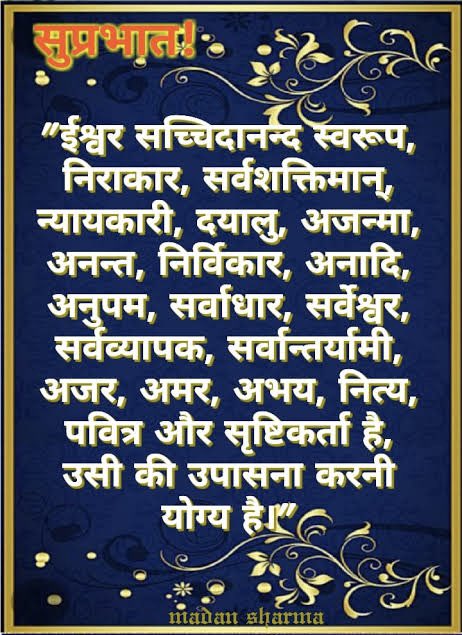 सुप्रभात!
"ईश्वर सच्चिदानन्द स्वरूप,
निराकार, सर्वशक्तिमान्,
न्यायकारी, दयालु, अजन्मा,
अनन्त, निर्विकार, अनादि,
अनुपम, सर्वाधार, सर्वेश्वर,
सर्वव्यापक, सर्वान्तर्यामी,
अजर, अमर, अभय, नित्य,
पवित्र और सृष्टिकर्ता है,
उसी की उपासना करनी
योग्य है।"
madan sharma